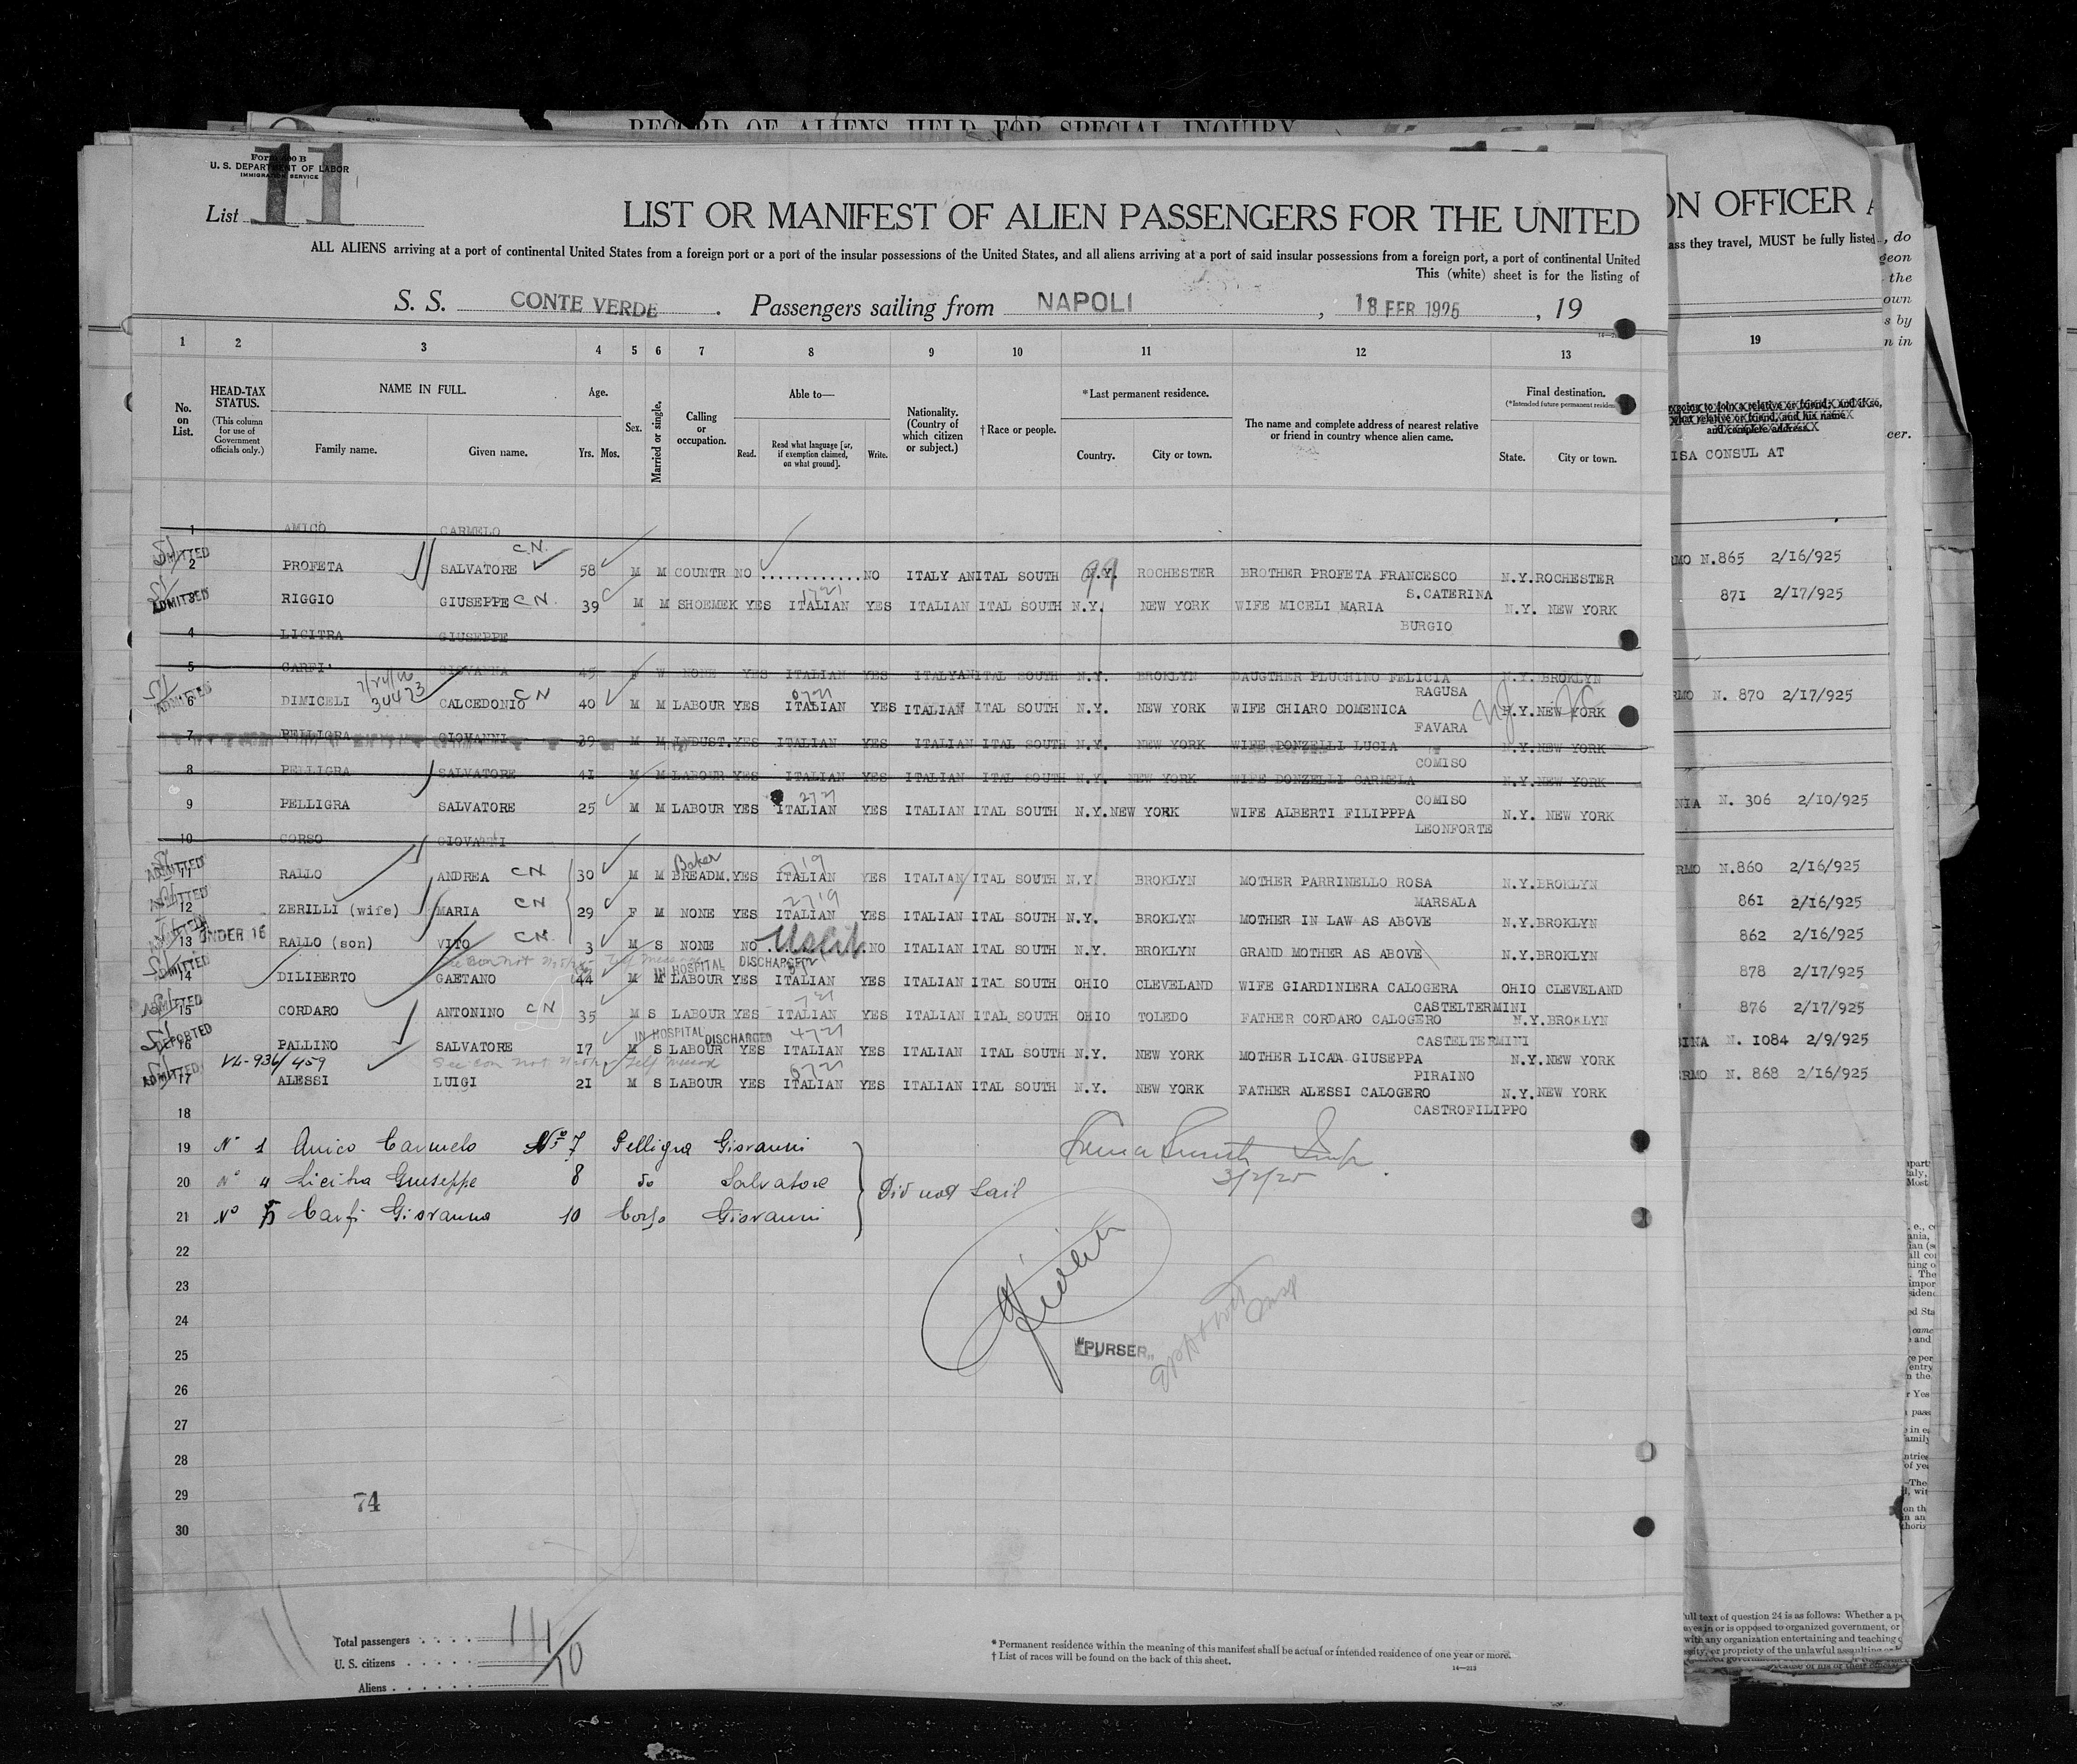 RECORD OF ALIENS HELD FOR SPECIAL INQUIRY
11
Form 500 B
U. S. DEPARTMENT OF LABOR
IMMIGRATION SERVICE
List
LIST OR MANIFEST OF ALIEN PASSENGERS FOR THE UNITED
ALL ALIENS arriving at a port of continental United States from a foreign port or a port of the insular possessions of the United States, and all aliens arriving at a port of said insular possessions from a foreign port, a port of continental United
This (white) sheet is for the listing of
S. S. CONTE VERDE . Passengers sailing from NAPOLI , 18 FEB 1925 , 19
1 2 3 4 5 6 7 8 9 10 11 12 13
No. on List.
HEAD-TAX STATUS.
(This column for use of Government officials only.)
NAME IN FULL.
Family name. Given name.
Age.
Yrs. Mos.
Sex.
Married or single.
Calling or occupation.
Able to—
Read. Read what language [or, if exemption claimed, on what ground]. Write.
Nationality. (Country of which citizen or subject.)
†Race or people.
*Last permanent residence.
Country. City or town.
The name and complete address of nearest relative or friend in country whence alien came.
Final destination.
(*Intended future permanent residence)
State. City or town.
1 AMICO CARMELO
C.N.
ADMITTED 2 PROFETA SALVATORE 58 M M COUNTR NO ............ NO ITALY AN ITAL SOUTH N.Y. ROCHESTER BROTHER PROFETA FRANCESCO N.Y. ROCHESTER
S.CATERINA
ADMITTED 3 RIGGIO GIUSEPPE C N. 39 M M SHOEMEK YES ITALIAN YES ITALIAN ITAL SOUTH N.Y. NEW YORK WIFE MICELI MARIA N.Y. NEW YORK
BURGIO
4 LICITRA GIUSEPPE
5 CARFI' GIOVANNA 45 F W NONE YES ITALIAN YES ITALYAN ITAL SOUTH N.Y. BROKLYN DAUGTHER PLUCHINO FELICIA N.Y. BROKLYN
RAGUSA
ADMITTED 6 DIMICELI 34473 CALCEDONIO C N 40 M M LABOUR YES ITALIAN YES ITALIAN ITAL SOUTH N.Y. NEW YORK WIFE CHIARO DOMENICA N.Y. NEW YORK
FAVARA
7 PELLIGRA GIOVANNI 39 M M INDUST. YES ITALIAN YES ITALIAN ITAL SOUTH N.Y. NEW YORK WIFE DONZELLI LUCIA N.Y. NEW YORK
COMISO
8 PELLIGRA SALVATORE 41 M M LABOUR YES ITALIAN YES ITALIAN ITAL SOUTH N.Y. NEW YORK WIFE DONZELLI CARMELA N.Y. NEW YORK
COMISO
9 PELLIGRA SALVATORE 25 M M LABOUR YES ITALIAN YES ITALIAN ITAL SOUTH N.Y. NEW YORK WIFE ALBERTI FILIPPPA N.Y. NEW YORK
LEONFORTE
10 CORSO GIOVANNI
Baker
ADMITTED 11 RALLO ANDREA C N. 30 M M BREADM. YES ITALIAN YES ITALIAN ITAL SOUTH N.Y. BROKLYN MOTHER PARRINELLO ROSA N.Y. BROKLYN
MARSALA
ADMITTED 12 ZERILLI (wife) MARIA C N 29 F M NONE YES ITALIAN YES ITALIAN ITAL SOUTH N.Y. BROKLYN MOTHER IN LAW AS ABOVE N.Y. BROKLYN
ADMITTED 13 UNDER 16 RALLO (son) VITO C N. 3 M S NONE NO NO ITALIAN ITAL SOUTH N.Y. BROKLYN GRAND MOTHER AS ABOVE N.Y. BROKLYN
IN HOSPITAL DISCHARGED
ADMITTED 14 DILIBERTO GAETANO 44 M M LABOUR YES ITALIAN YES ITALIAN ITAL SOUTH OHIO CLEVELAND WIFE GIARDINIERA CALOGERA OHIO CLEVELAND
CASTELTERMINI
ADMITTED 15 CORDARO ANTONINO C N 35 M S LABOUR YES ITALIAN YES ITALIAN ITAL SOUTH OHIO TOLEDO FATHER CORDARO CALOGERO N.Y. BROKLYN
CASTELTERMINI
IN HOSPITAL DISCHARGED
DEPORTED 16 PALLINO SALVATORE 17 M S LABOUR YES ITALIAN YES ITALIAN ITAL SOUTH N.Y. NEW YORK MOTHER LICATA GIUSEPPA N.Y. NEW YORK
PIRAINO
VL-936/459
ADMITTED 17 ALESSI LUIGI 21 M S LABOUR YES ITALIAN YES ITALIAN ITAL SOUTH N.Y. NEW YORK FATHER ALESSI CALOGERO N.Y. NEW YORK
CASTROFILIPPO
18
19 N° 1 Amico Carmelo N° 7 Pelligra Giovanni
20 N° 4 Licitra Giuseppe 8 do Salvatore Did not sail
21 N° 5 Carfi Giovanna 10 Corso Giovanni
3/2/25
22
23
24
25
"PURSER"
26
27
28
29
30
74
Total passengers
U. S. citizens
Aliens
*Permanent residence within the meaning of this manifest shall be actual or intended residence of one year or more.
†List of races will be found on the back of this sheet.
14—213
ON OFFICER A
ass they travel, MUST be fully listed
19
and complete address.
ISA CONSUL AT
RMO N.865 2/16/925
871 2/17/925
RMO N. 870 2/17/925
NIA N. 306 2/10/925
RMO N.860 2/16/925
861 2/16/925
862 2/16/925
878 2/17/925
" 876 2/17/925
SINA N. 1084 2/9/925
ERMO N. 868 2/16/925
full text of question 24 is as follows: Whether a
aves in or is opposed to organized government, or
with any organization entertaining and teaching
sity, or propriety of the unlawful assaulting
, do
geon
the
own
s by
n in
cer.